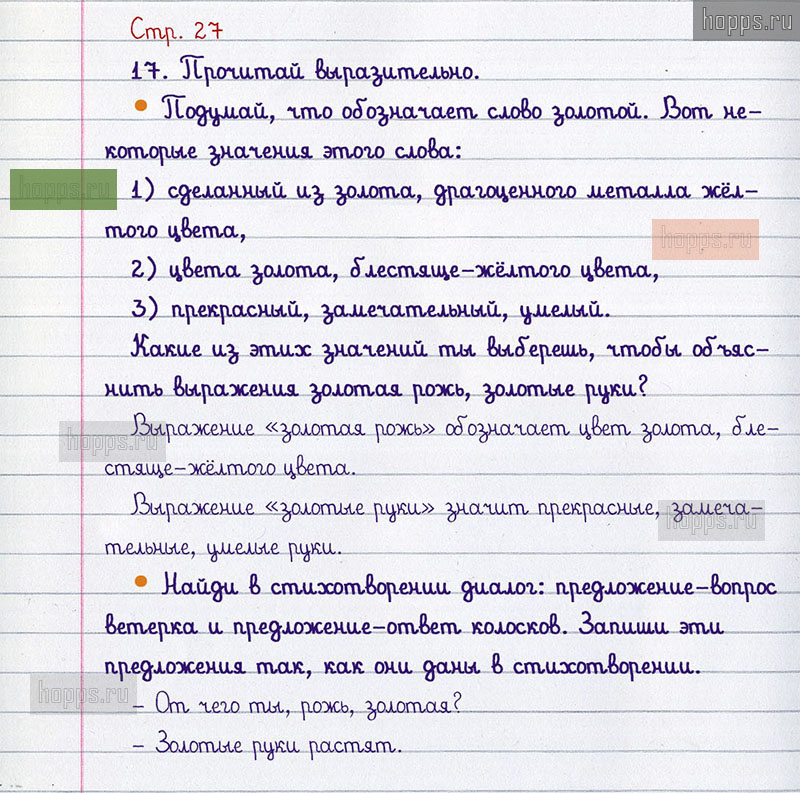 hopps.ru
Стр. 27
17. Прочитай выразительно.
• Подумай, что обозначает слово золотой. Вот не-
которые значения этого слова:
hopps.ru
1) сделанный из золота, драгоценного металла жёл-
того цвета,
hopps.ru
2) цвета золота, блестяще-жёлтого цвета,
3) прекрасный, замечательный, умелый.
Какие из этих значений ты выберешь, чтобы объяс-
нить выражения золотая рожь, золотые руки?
Выражение «золотая рожь» обозначает цвет золота, бле-
hopps.ru
стяще-жёлтого цвета.
Выражение «золотые руки» значит прекрасные, замеча-
hopps.ru
тельные, умелые руки.
• Найди в стихотворении диалог: предложение-вопрос
ветерка и предложение-ответ колосков. Запиши эти
предложения так, как они даны в стихотворении.
hopps.ru
– От чего ты, рожь, золотая?
– Золотые руки растят.